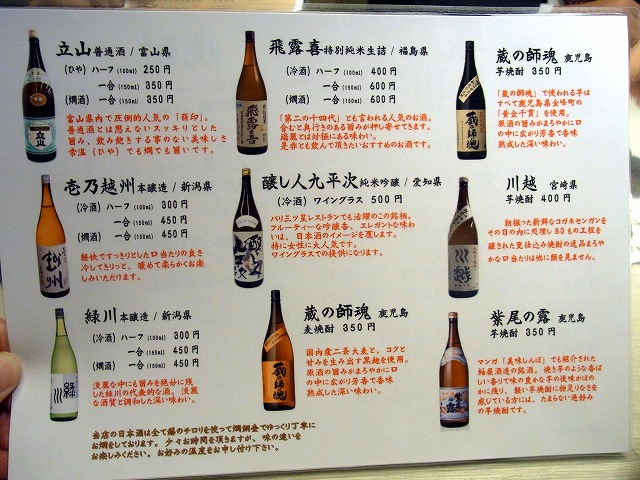 立山 普通酒 / 富山県
(ひや) ハーフ (100ml) 250円
一合 (150ml) 350円
(燗酒) 一合 (150ml) 350円
富山県内で圧倒的人気の「酉印」。
普通酒とは思えないスッキリとした
旨み、飲み飽きする事のない美味しさ
常温 (ひや) でも燗でも旨いです。
壱乃越州 本醸造 / 新潟県
(冷酒) ハーフ (100ml) 300円
一合 (150ml) 450円
(燗酒) 一合 (150ml) 450円
軽快ですっきりとした口当たりの良さ
冷してきりっと、暖めて柔らかくお楽
しみいただけます。
緑川 本醸造 / 新潟県
(冷酒) ハーフ (100ml) 300円
一合 (150ml) 450円
(燗酒) 一合 (150ml) 450円
淡麗な中にも旨みを絶妙に残
した緑川の代表的な酒。淡麗
な酒質と調和した深い味わい。
飛露喜 特別純米生詰 / 福島県
(冷酒) ハーフ (100ml) 400円
一合 (150ml) 600円
(燗酒) 一合 (150ml) 600円
「第二の十四代」とも言われる人気のお酒。
含むと奥行きのある旨みが押し寄せてきます。
端麗とは対極にある味わい。
是非とも飲んで頂きたいおすすめのお酒です。
醸し人九平次 純米吟醸 / 愛知県
(冷酒) ワイングラス 500円
パリ三ツ星レストランでも活躍のこの銘柄。
フルーティーな吟醸香、エレガントな味わ
いは、日本酒のイメージを覆します。
特に女性に大人気です。
ワイングラスでの提供になります。
蔵の師魂 鹿児島
麦焼酎 350円
国内産二条大麦と、コクと
甘みを生み出す黒麹を使用。
原酒の旨みがまろやかに口
の中に広がり芳香で香味
熟成した深い味わい。
蔵の師魂 鹿児島
芋焼酎 350円
「蔵の師魂」で使われる芋は
すべて鹿児島県金峰町の
「黄金千貫」を使用。
原酒の旨みがまろやかに口
の中に広がり芳香で香味
熟成した深い味わい。
川越 宮崎県
芋焼酎 400円
朝掘った新鮮なコガネセンガンを
その日の内に処理し83もの工程を
醸された度仕込み焼酎の逸品まろや
かな口当たりは他に類を見ません。
紫尾の露 鹿児島
芋焼酎 350円
マンガ「美味しんぼ」でも紹介された
軸屋酒造の銘酒。焼き芋のような香ば
しい香りで味の豊かな芋の後味がほの
かに残り、軽い芋焼酎に物足りなさを
感じている方には、たまらない通好み
の芋焼酎です。
当店の日本酒は全て錫のチロリを使って燗銅壺でゆっくり丁寧に
お燗をしております。少々お時間を頂きますが、味の違いを
お楽しみください。お好みの温度をお申し付け下さい。